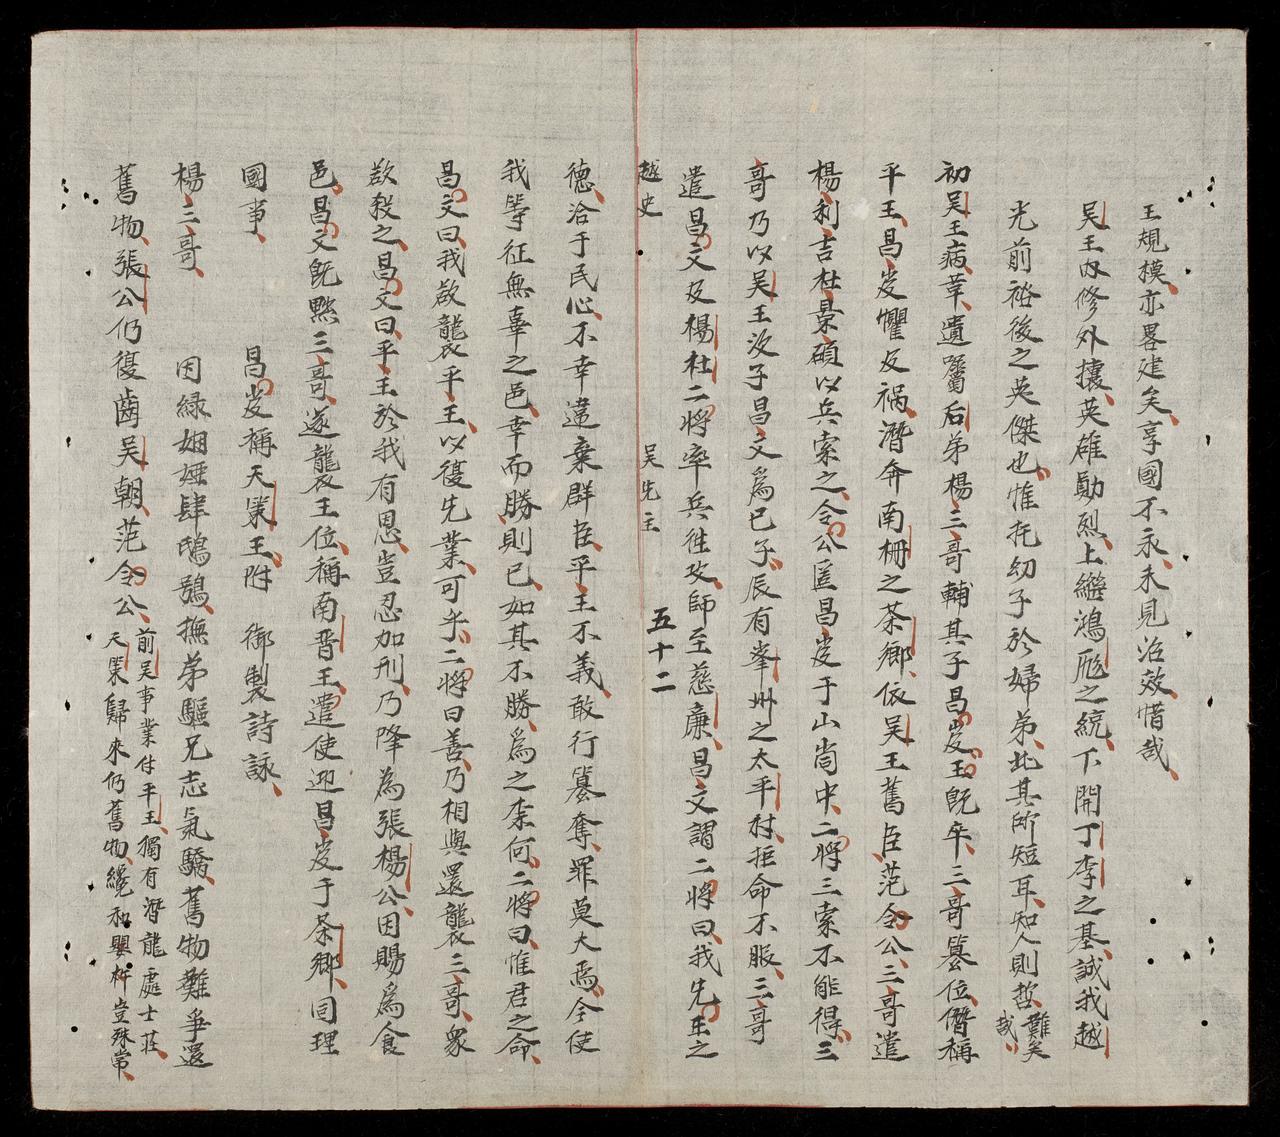 王規模亦畧建矣享國不永未見治效惜哉
吳王內修外攘英雄勛烈上纘鴻厖之統下開丁李之基誠我越
光前裕後之英傑也惟托幼子於婦弟此其所短耳知人則哲難矣哉
初吳王病革遺囑后弟楊三哥輔其子昌岌王旣卒三哥篡位僭稱
平王昌岌懼及禍潛奔南柵之茶鄉依吳王舊臣范令公三哥遣
楊利吉杜景碩以兵索之令公匿昌岌于山峝中二將三索不能得三
哥乃以吳王次子昌文爲己子辰有峯州之太平村拒命不服三哥
遣昌文及楊杜二將率兵徃攻師至慈廉昌文謂二將曰我先王之
越史 吳先主 五十二
德洽于民心不幸違棄群臣平王不義敢行篡奪罪莫大焉今使
我等征無辜之邑幸而勝則已如其不勝爲之柰何二將曰惟君之命
昌文曰我欲襲平王以復先業可乎二將曰善乃相與還襲三哥衆
欲殺之昌文曰平王於我有恩豈忍加刑乃降為張楊公因賜爲食
邑昌文旣黜三哥遂襲王位稱南晋王遣使迎昌岌于茶鄉同理
國事 昌岌稱天策王附 御製詩詠
楊三哥 因緣姻婭肆鴟鴞撫弟驅兄志氣驕舊物難爭還
舊物張公仍復齒吳朝范令公 前吳事業付平王獨有潛龍處士莊
天策歸來仍舊物纔和嬰杵豈殊常